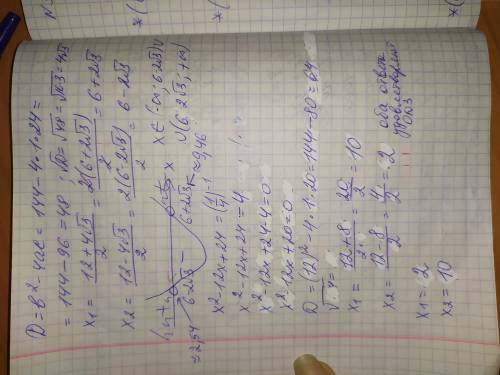 D = b² - 4ac = 144 - 4·1·24 =
= 144 - 96 = 48 ; √D = √48 = √16·3 = 4√3
x₁ = (12 + 4√3)/2 = 2(6 + 2√3)/2 = 6 + 2√3
x₂ = (12 - 4√3)/2 = 2(6 - 2√3)/2 = 6 - 2√3
x ∈ (-∞; 6-2√3) ∪
∪ (6+2√3; +∞)
6-2√3 - 6+2√3 x
≈ 2,54
x² - 12x + 24 = (1/4)⁻¹
x² - 12x + 24 = 4
x² - 12x + 24 - 4 = 0
x² - 12x + 20 = 0
D = (12)² - 4·1·20 = 144 - 80 = 64
x₁ = (12 + 8)/2 = 20/2 = 10
x₂ = (12 - 8)/2 = 4/2 = 2
оба ответа
удовлетворяют
ОДЗ
x₁ = 2
x₂ = 10